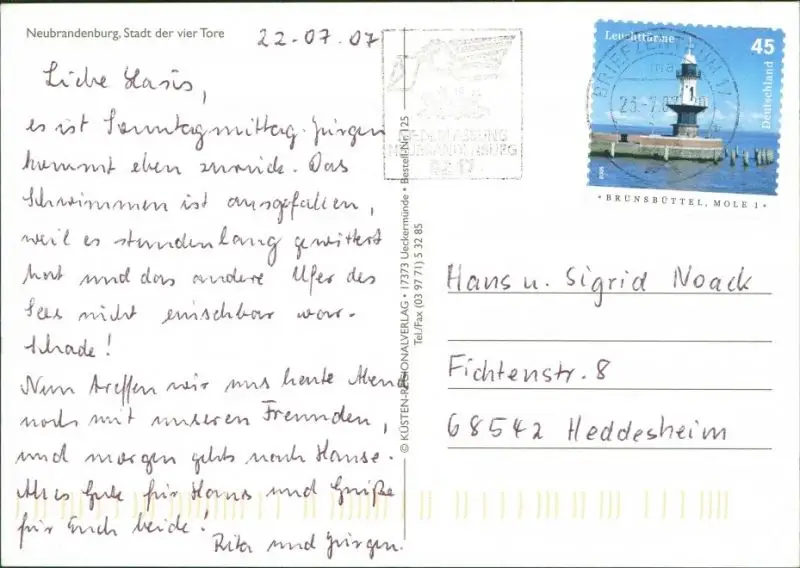 Neubrandenburg, Stadt der vier Tore
22.07.07
Liebe Hasis,
es ist Sonntagmittag. Jürgen
kommt eben zurück. Das
Schwimmen ist ausgefallen,
weil es stundenlang gewittert
hat und das andere Ufer des
Sees nicht einsehbar war.
Schade!
Nun treffen wir uns heute Abend
noch mit unseren Freunden,
und morgen gehts nach Hause.
Alles Gute für Hans und Grüße
für Euch beide!
Rita und Jürgen.
© KÜSTEN-REGIONALVERLAG • 17373 Ueckermünde • Bestell-Nr. 125
Tel./Fax (03 97 71) 5 32 85
NEUBRANDENBURG
BRIEFZENTRUM 17
Leuchttürme
45
Deutschland
BRUNSBÜTTEL, MOLE 1
Hans u. Sigrid Noack
Fichtenstr. 8
68542 Heddesheim